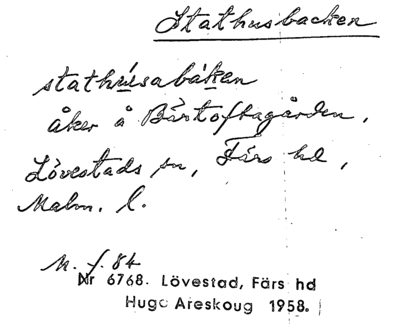 Stathusbacken
stathúsabáken
åker å Bårtoftagården,
Lövestads sn, Färs hd,
Malm. l.
M. f. 84
Nr 6768. Lövestad, Färs hd
Hugo Areskoug 1958.